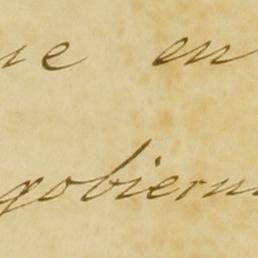 ue en
gobiern